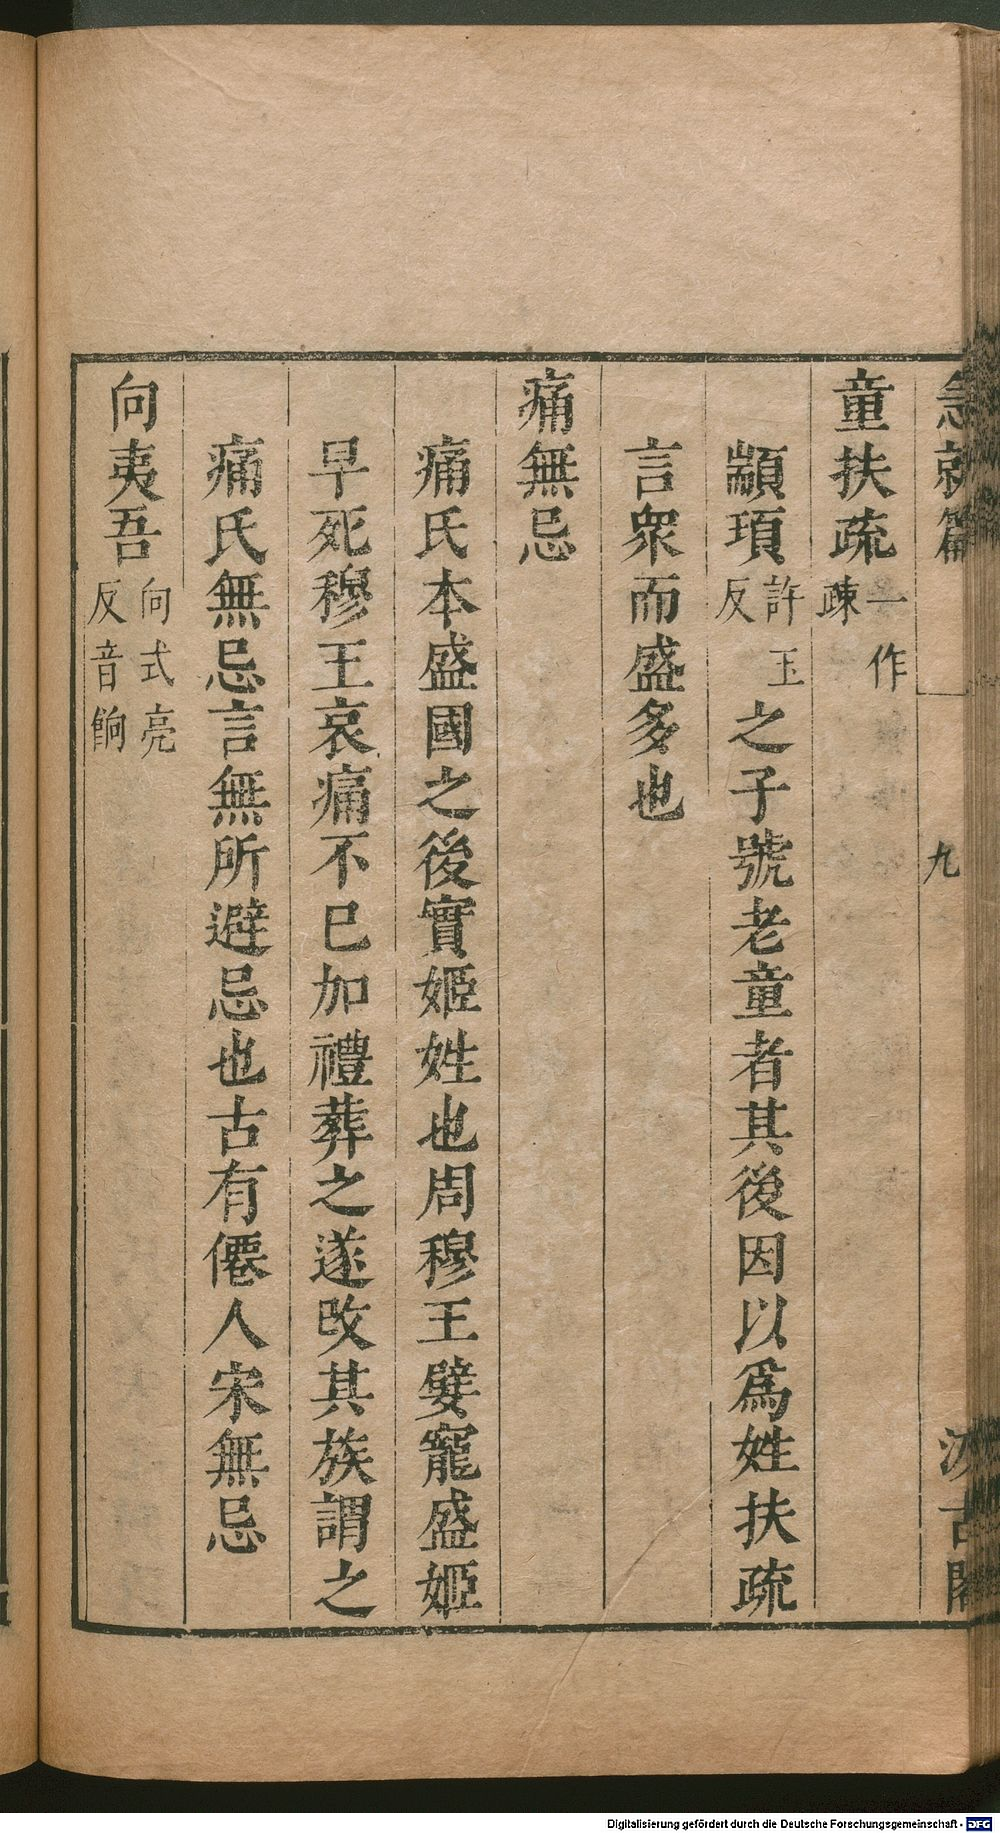 急就篇 九 汲古閣
童扶疏一作疎
顓頊許玉反之子號老童者其後因以爲姓扶疏
言衆而盛多也
痛無忌
痛氏本盛國之後實姬姓也周穆王嬖寵盛姬
早死穆王哀痛不已加禮葬之遂改其族謂之
痛氏無忌言無所避忌也古有僊人宋無忌
向夷吾向式亮反音餉
Digitalisierung gefördert durch die Deutsche Forschungsgemeinschaft - DFG